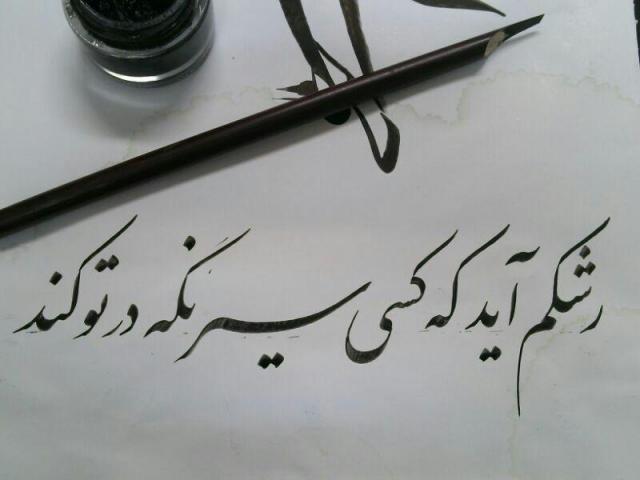 رشکم آید که کسی سیر نگه در تو کند